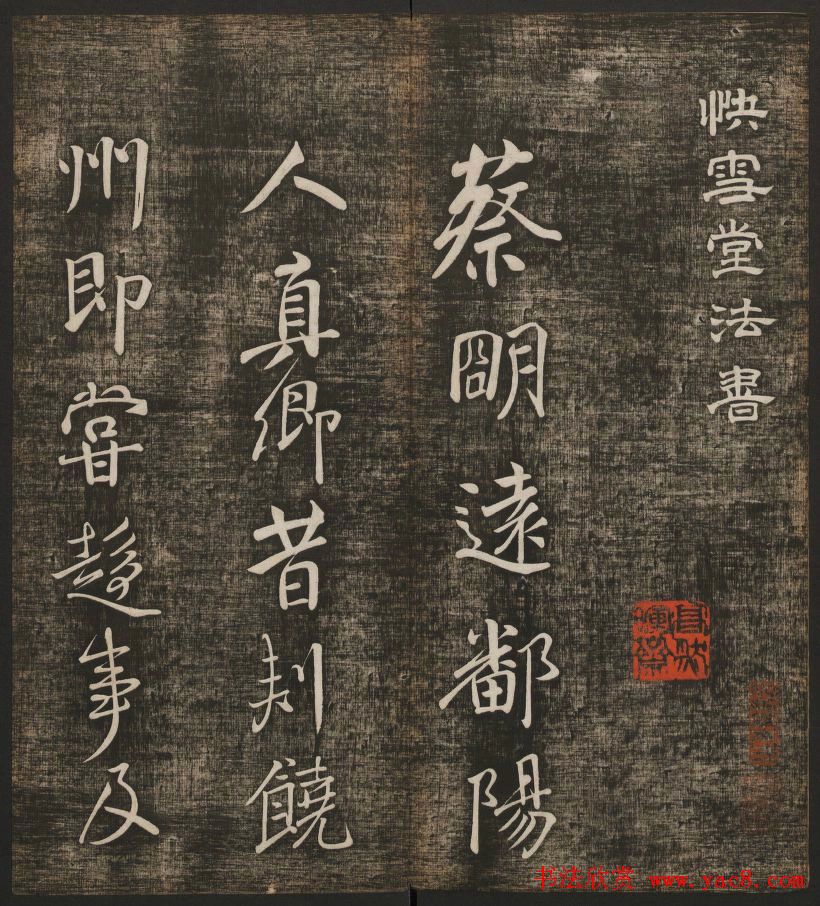 快雪堂法書
蔡明遠鄱陽
人真卿昔刺饒
州即甞趨事及
书法欣赏 www.yac8.com